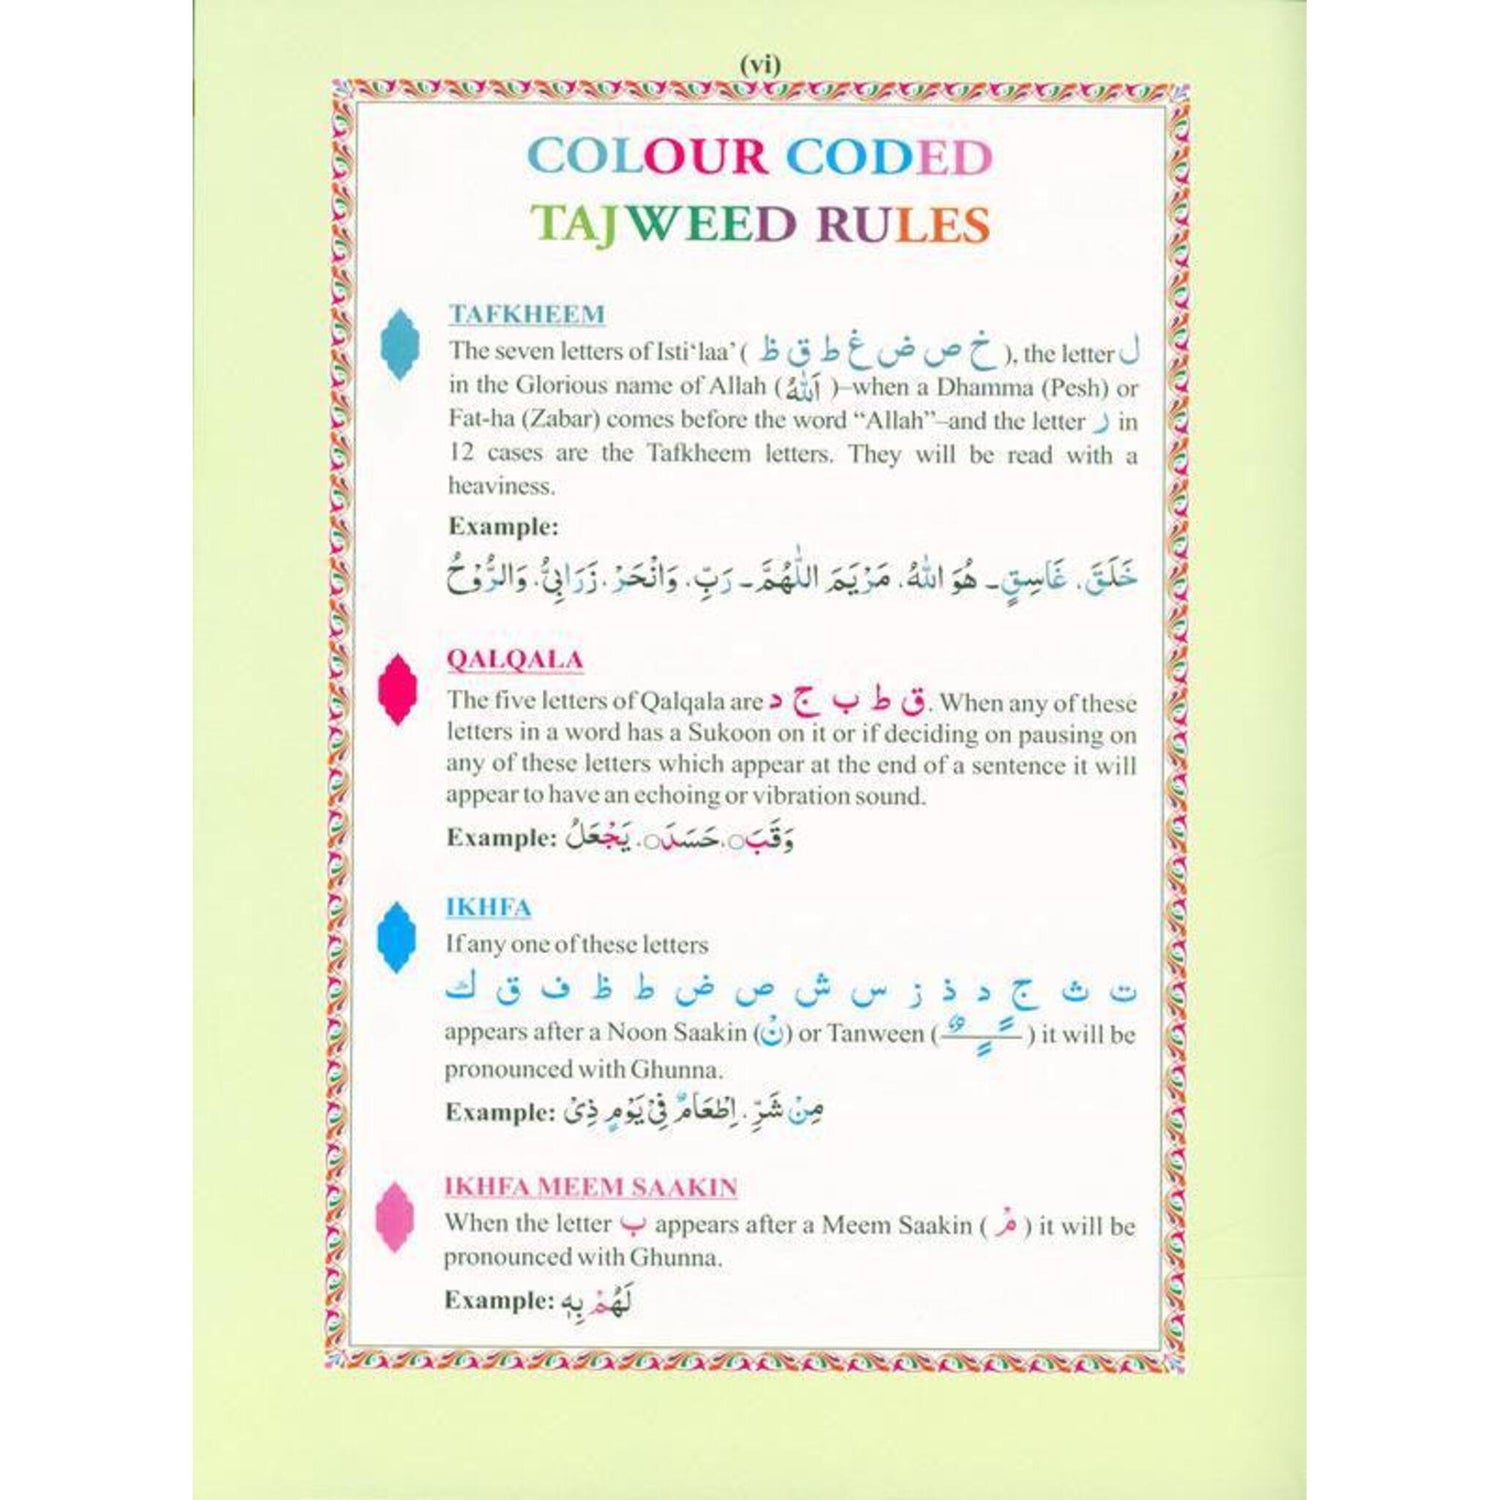 (vi)
COLOUR CODED
TAJWEED RULES
TAFKHEEM
The seven letters of Isti‘laa’ ( خ ص ض غ ط ق ظ ), the letter ل
in the Glorious name of Allah ( اَللّٰهُ )–when a Dhamma (Pesh) or
Fat-ha (Zabar) comes before the word “Allah”–and the letter ر in
12 cases are the Tafkheem letters. They will be read with a
heaviness.
Example:
خَلَقَ. غَاسِقٍ۔ هُوَ اللّٰهُ. مَرْيَمَ اللّٰهُمَّ۔ رَبِّ. وَانْحَرْ. زَرَابِيُّ. وَالرُّوْحُ
QALQALA
The five letters of Qalqala are ق ط ب ج د. When any of these
letters in a word has a Sukoon on it or if deciding on pausing on
any of these letters which appear at the end of a sentence it will
appear to have an echoing or vibration sound.
Example: وَقَبَ○. حَسَدَ○. يَجْعَلُ
IKHFA
If any one of these letters
ت ث ج د ذ ز س ش ص ض ط ظ ف ق ك
appears after a Noon Saakin (نْ) or Tanween ( ً ٍ ٌ ) it will be
pronounced with Ghunna.
Example: مِنْ شَرِّ. اِطْعَامٌ فِيْ يَوْمٍ ذِيْ
IKHFA MEEM SAAKIN
When the letter ب appears after a Meem Saakin ( مْ ) it will be
pronounced with Ghunna.
Example: لَهُمْ بِهٖ